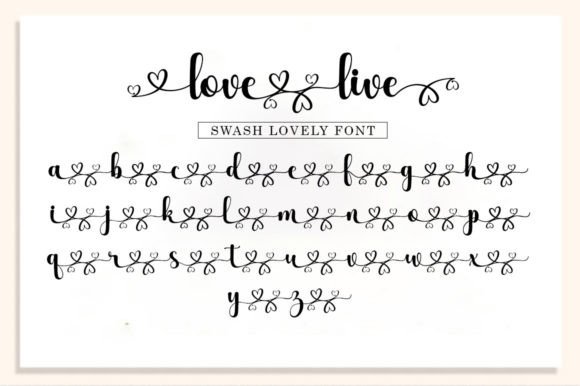 love live
SWASH LOVELY FONT
a b c d e f g h
i j k l m n o p
q r s t u v w x
y z